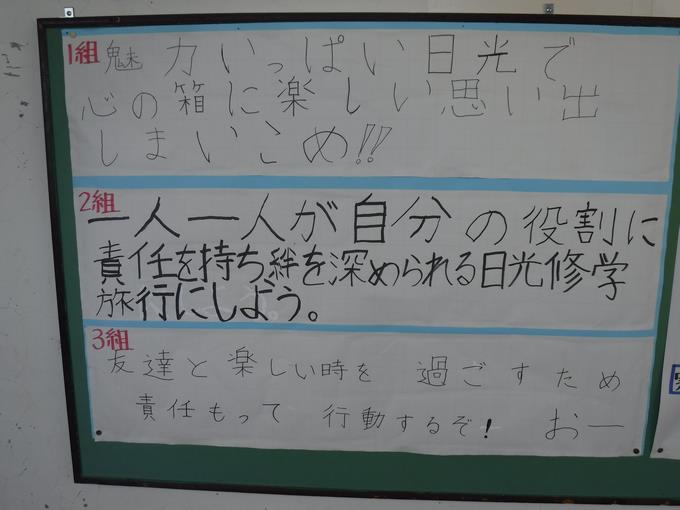 1組 魅力いっぱい日光で
心の箱に楽しい思い出
しまいこめ!!
2組
一人一人が自分の役割に
責任を持ち絆を深められる日光修学
旅行にしよう。
3組
友達と楽しい時を 過ごすため
責任もって 行動するぞ! おー